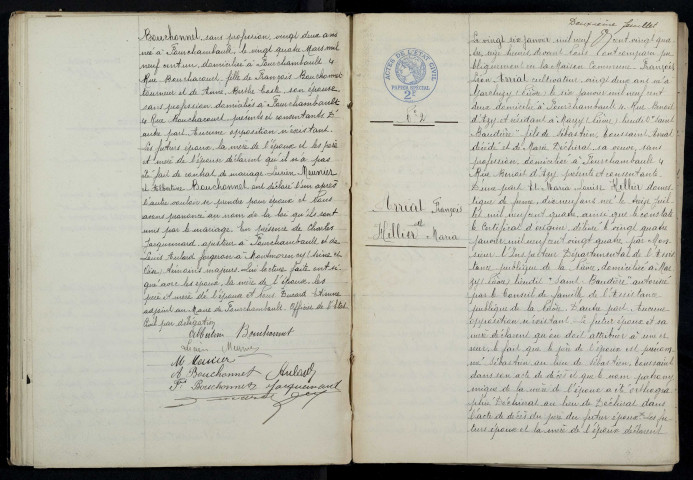 Bouchonnet, sans profession, vingt deux ans
née à Fourchambault, le vingt quatre Mars mil
neuf cent un domiciliée à Fourchambault 4
Rue Bouchacourt, fille de François Bouchonnet
tourneur et de Anne, Berthe son épouse
sans profession domiciliés à Fourchambault
4 Rue Bouchacourt présents et consentants D'
autre part. Aucune opposition n'existant.
Les futurs époux, la mère de l'époux et les père
et mère de l'épouse déclarent qu'il n'a pas
été fait de contrat de mariage. Lucien Meunier
et Albertine Bouchonnet ont déclaré l'un après
l'autre vouloir se prendre pour époux et Nous
avons prononcé au nom de la loi qu'ils sont
unis par le mariage. En présence de Charles
Jacquemard, ajusteur à Fourchambault et de
Louis forgeron à
témoins majeurs. Lui lecture faite ont si-
gné avec les époux, la mère de l'époux, les
père et mère de l'épouse et Nous Etienne
adjoint au Maire de Fourchambault, Officier de l'Etat
Civil par délégation
Albertine Bouchonnet
Lucien Meunier
M Meunier
A Bouchonnet
F. Bouchonnet Jacquemard
ACTES DE L'ÉTAT CIVIL
PAPIER SPÉCIAL
2F
N° 2
Arrial François
et
Hellier Maria
Deuxième feuillet
Le vingt six janvier mil neuf cent vingt quatre
dix sept heures devant Nous ont comparu pu
bliquement en la Maison Commune: François
Léon Arrial cultivateur vingt deux ans né à
Marzy, Nièvre, le six janvier mil neuf cent
deux domicilié à Fourchambault, 4 Rue Benoit
d'Azy et résidant à Marzy (Nièvre) lieudit "Saint
Baudière" fils de Sébastien, Toussaint Arrial
décédé et de Maria Déchirat sa veuve, sans
profession domiciliée à Fourchambault 4
Rue Benoit d'Azy présente et consentante
D'une part. Et Maria Louise Hellier domes
tique de ferme, dix neuf ans née le
mil neuf cent quatre ainsi que le constate
le Certificat d'origine délivré le vingt quatre
janvier mil neuf cent vingt quatre par Mon
sieur l'Inspecteur Départemental de l'Assis
tance publique de la Nièvre, domiciliée à Mar
zy (Nièvre) lieudit "Saint Baudière" autorisée
par le Conseil de famille de l'Assistance
publique de la Nièvre D'autre part. Aucune
opposition n'existant. Le futur époux et sa
mère déclarent qu'on doit attribuer à une er
reur le fait que le père de l'époux est prénom
mé Sébastien au lieu de Sébastien, Toussaint
dans son acte de décès et que le nom patrony
mique de la mère de l'époux a été orthogra
phié Déchirat au lieu de Déchirat dans
l'acte de décès du père du futur époux. Les fu
turs époux et la mère de l'époux déclarent